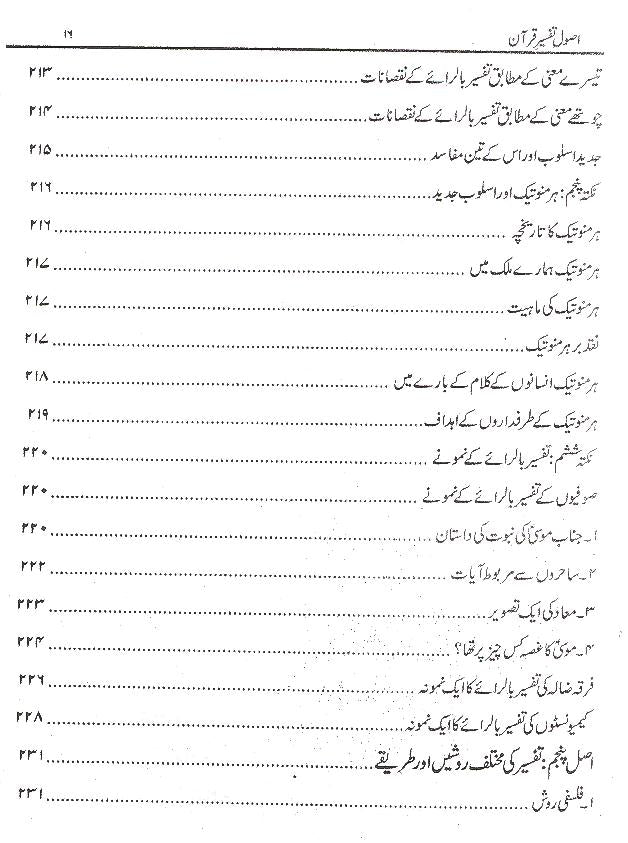 اصول تفسیر قرآن ۱۶
تیسرے معنی کے مطابق تفسیر بالرائے کے نقصانات ۲۱۳
چوتھے معنی کے مطابق تفسیر بالرائے کے نقصانات ۲۱۴
جدید اسلوب اور اس کے تین مفاسد ۲۱۵
نکتہ پنجم: ہرمنوتیک اور اسلوب جدید ۲۱۶
ہرمنوتیک کا تاریخچہ ۲۱۶
ہرمنوتیک ہمارے ملک میں ۲۱۷
ہرمنوتیک کی ماہیت ۲۱۷
نقد بر ہرمنوتیک ۲۱۷
ہرمنوتیک انسانوں کے کلام کے بارے میں ۲۱۸
ہرمنوتیک کے طرفداروں کے اہداف ۲۱۹
نکتہ ششم: تفسیر بالرائے کے نمونے ۲۲۰
صوفیوں کے تفسیر بالرائے کے نمونے ۲۲۰
۱۔ جناب موسیٰؑ کی نبوت کی داستان ۲۲۰
۲۔ ساحروں سے مربوط آیات ۲۲۲
۳۔ معاد کی ایک تصویر ۲۲۳
۴۔ موسیٰؑ کا غصہ کس چیز پر تھا؟ ۲۲۴
فرقہ ضالہ کی تفسیر بالرائے کا ایک نمونہ ۲۲۶
کمیونسٹوں کی تفسیر بالرائے کا ایک نمونہ ۲۲۸
اصل پنجم: تفسیر کی مختلف روشیں اور طریقے ۲۳۱
۱۔ فلسفی روش ۲۳۱